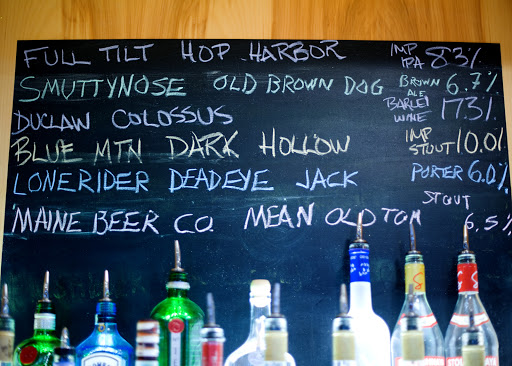 FULL TILT HOP HARBOR IMP IPA 8.3%
SMUTTYNOSE OLD BROWN DOG BROWN ALE 6.7%
DUCLAW COLOSSUS BARLEY WINE 17.3%
BLUE MTN DARK HOLLOW IMP STOUT 10.0%
LONERIDER DEADEYE JACK PORTER 6.0%
MAINE BEER CO. MEAN OLD TOM STOUT 6.5%